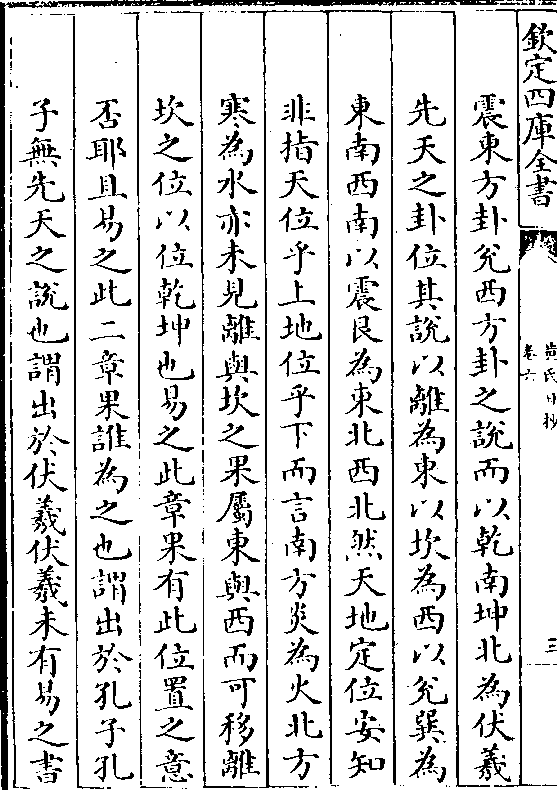 欽定四庫全書
黄氏日抄
卷六
三
震東方卦兊西方卦之說而以乾南坤北為伏羲
先天之卦位其說以離為東以坎為西以兊巽為
東南西南以震艮為東北西北然天地定位安知
非指天位乎上地位乎下而言南方炎為火北方
寒為水亦未見離與坎之果屬東與西而可移離
坎之位以位乾坤也易之此章果有此位置之意
否耶且易之此二章果誰為之也謂出於孔子孔
子無先天之說也謂出於伏羲伏羲未有易之書